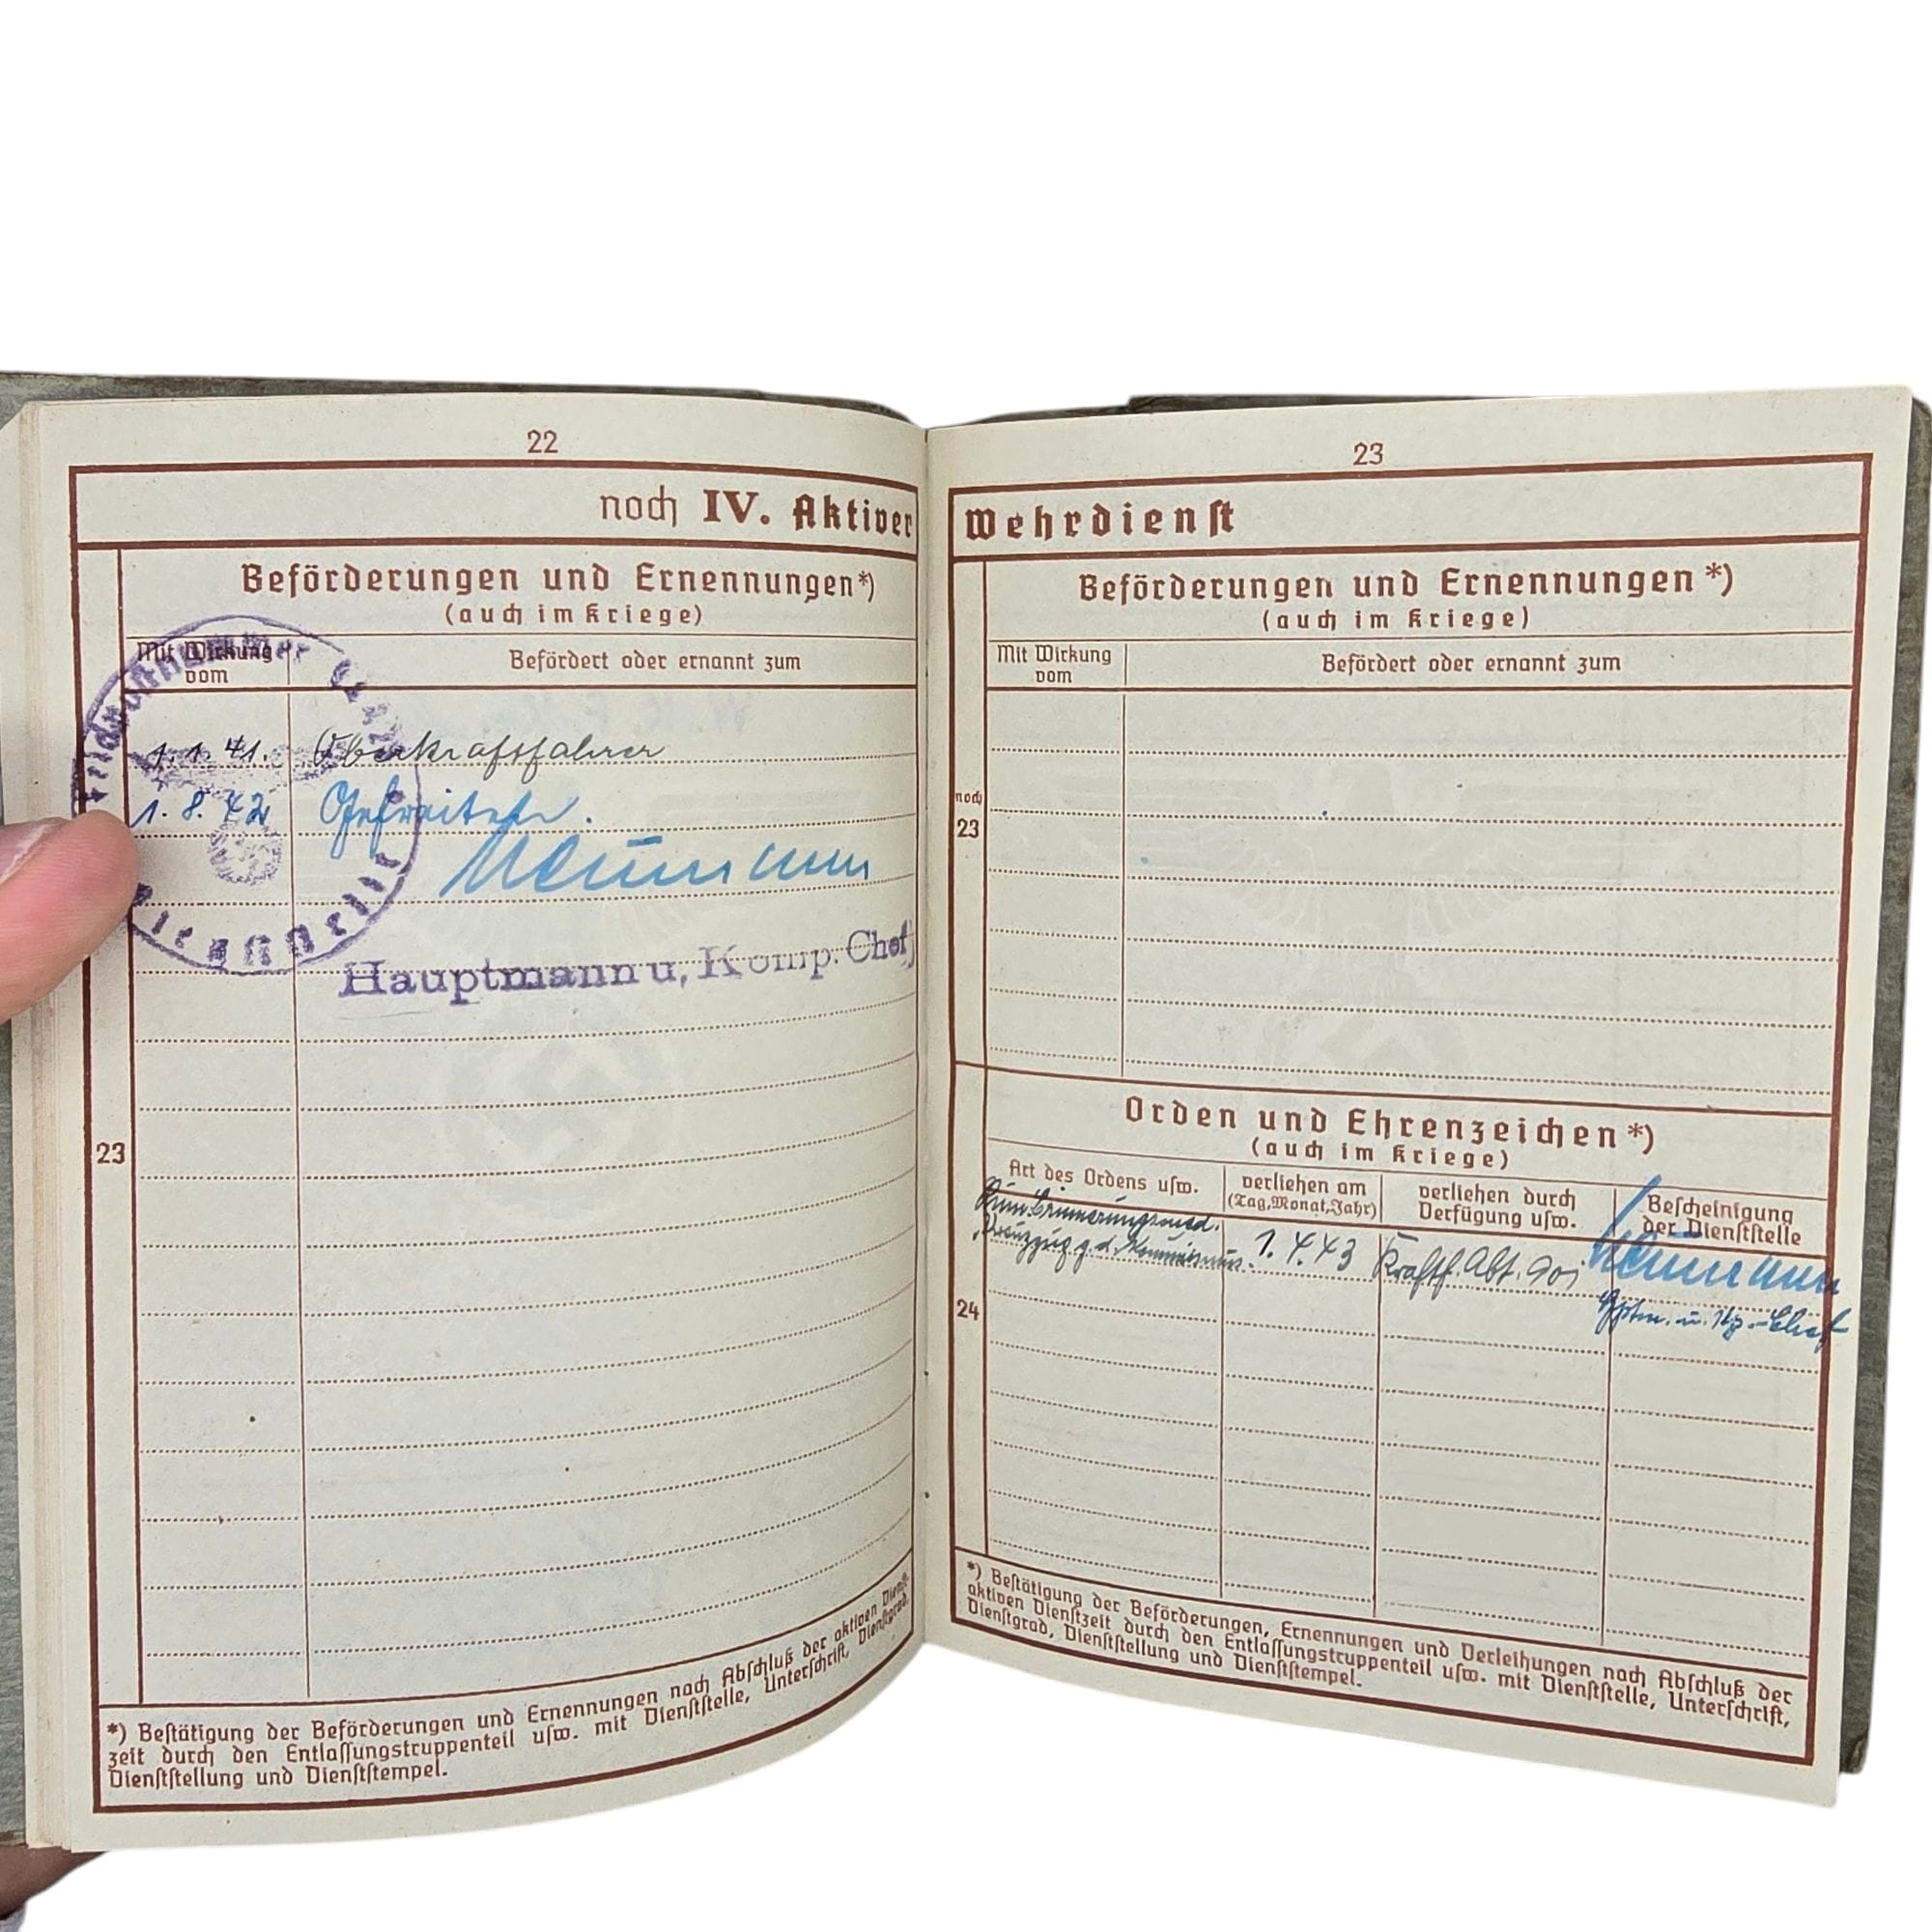 22
noch IV. Aktiver
Beförderungen und Ernennungen*)
(auch im Kriege)
Mit Wirkung
vom
Befördert oder ernannt zum
1.1.41. Oberkraftfahrer
1.8.42 Gefreiter.
Neumann
Hauptmann u, Komp. Chef
23
*) Bestätigung der Beförderungen und Ernennungen nach Abschluß der aktiven Dienst-
zeit durch den Entlassungstruppenteil usw. mit Dienststelle, Unterschrift, Dienstgrad,
Dienststellung und Dienststempel.
Feldpostnummer
Dienststelle
23
Wehrdienst
Beförderungen und Ernennungen*)
(auch im Kriege)
Mit Wirkung
vom
Befördert oder ernannt zum
noch
23
Orden und Ehrenzeichen*)
(auch im Kriege)
Art des Ordens usw.
verliehen am
(Tag, Monat, Jahr)
verliehen durch
Verfügung usw.
Bescheinigung
der Dienststelle
Rum. Erinnerungsmed.
"Kreuzzug g. d. Kommunismus. 1.4.43 Kraftf. Abt. Neumann
Hptm. u. Kp.-Chef
24
*) Bestätigung der Beförderungen, Ernennungen und Verleihungen nach Abschluß der
aktiven Dienstzeit durch den Entlassungstruppenteil usw. mit Dienststelle, Unterschrift,
Dienstgrad, Dienststellung und Dienststempel.